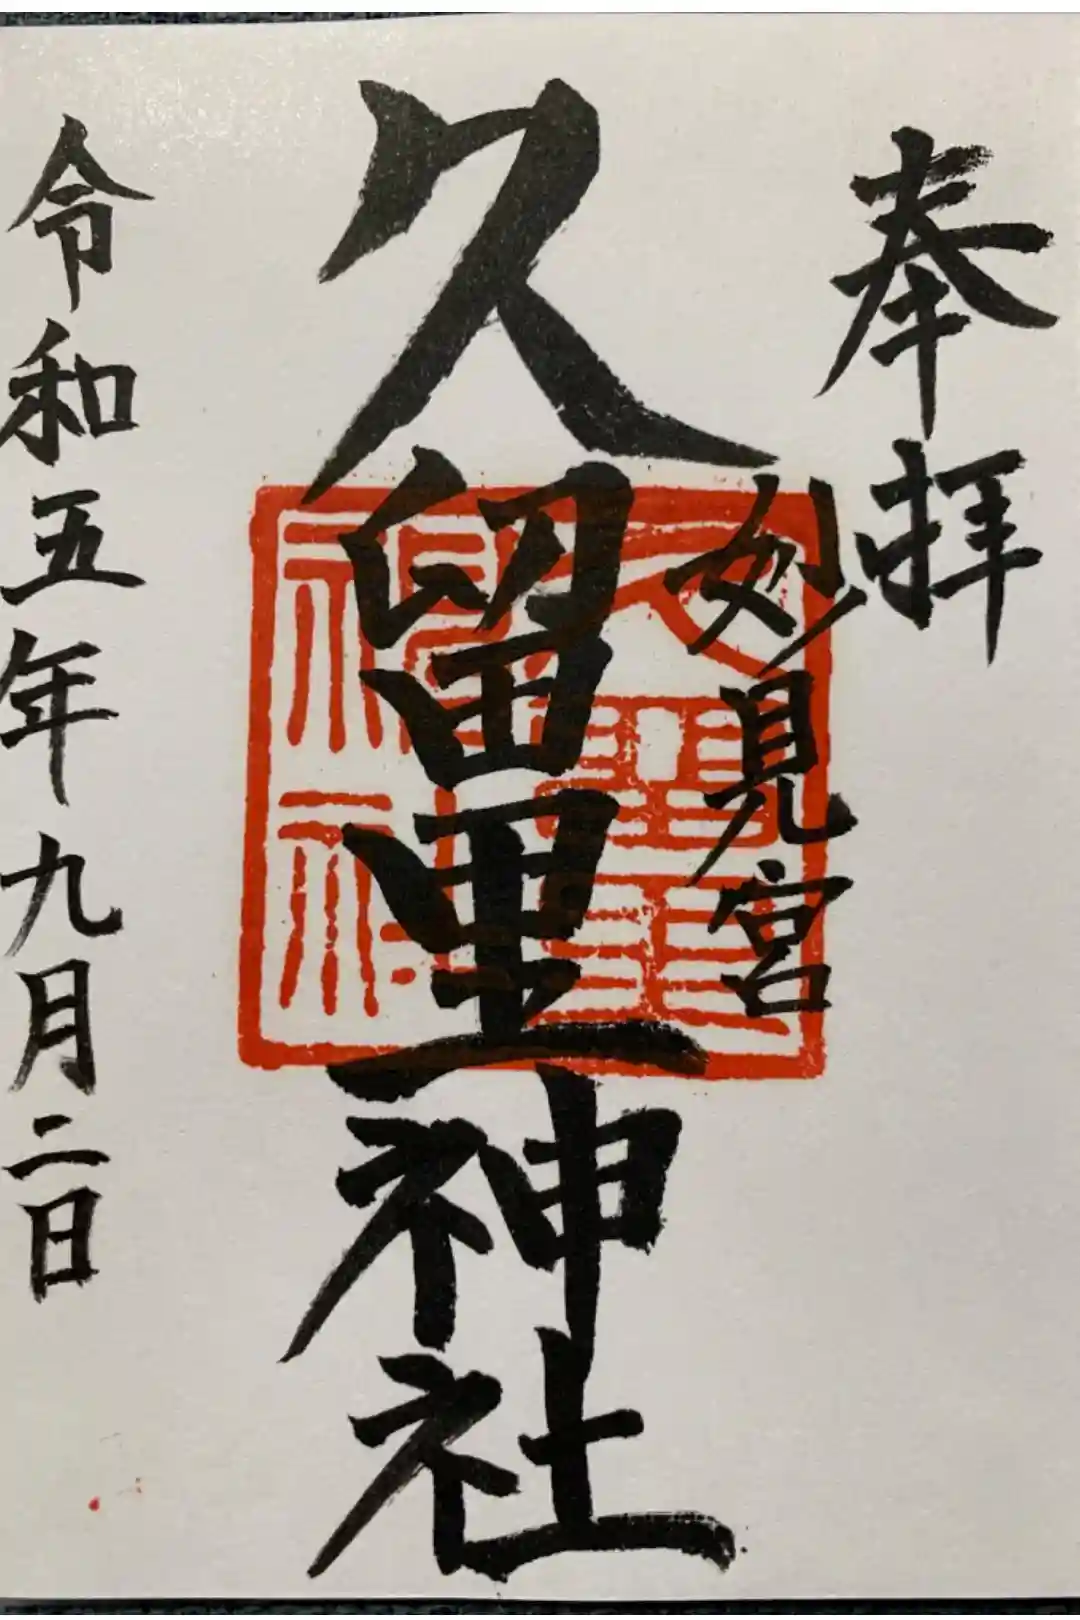 奉拝
妙見宮
久留里神社
令和五年九月二日
久留里
神社